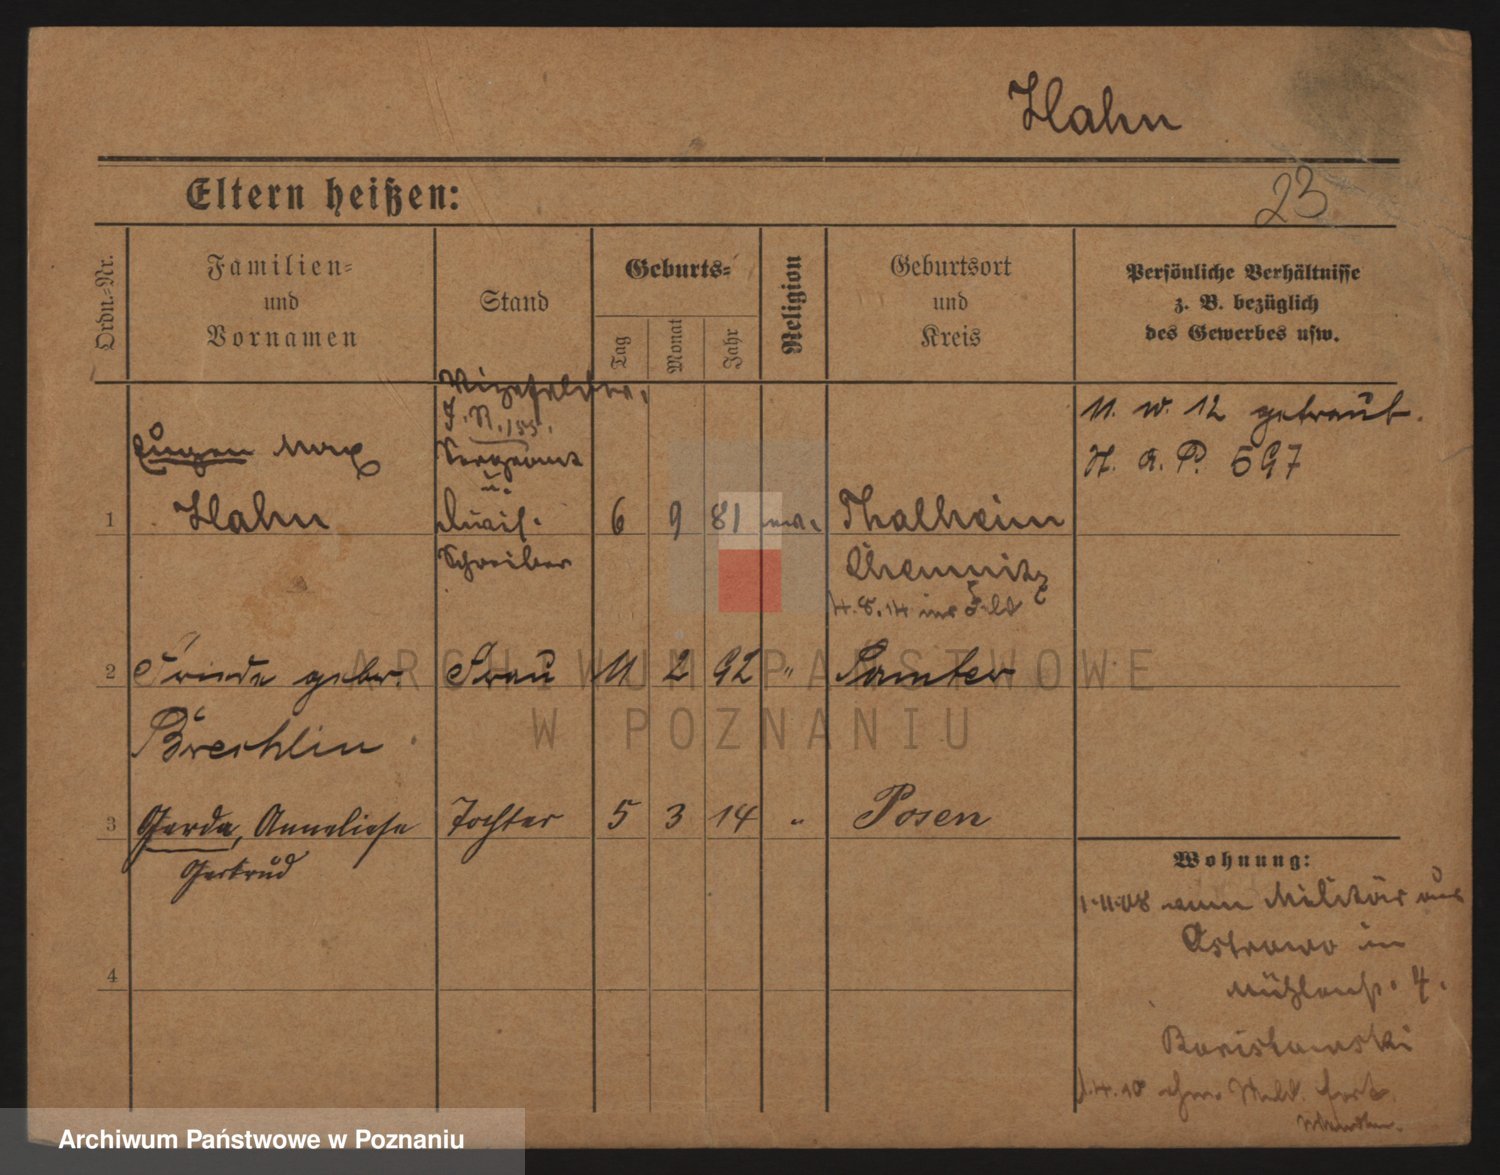 Hahn
Eltern heißen:
23
Ordn.-Nr.
Familien-
und
Vornamen
Stand
Geburts-
Tag
Monat
Jahr
Religion
Geburtsort
und
Kreis
Persönliche Verhältnisse
z. B. bezüglich
des Gewerbes usw.
Vizefeldw.
J. R. 155.
Sergeant
u.
Schreiber
Eugen Max
1 Hahn 6 9 81 Thalheim
Chemnitz
4.8.14 ins Feld
11. 12 getraut.
H. A. P. 597
2 Friede gebr. Frau 11 2 92 " Samter
Brechlin
3 Gerda, Anneliese Tochter 5 3 14 " Posen
Gertrud
4
Wohnung:
1.11.08 vom Militär aus
Ostrowo in
Mühlenstr. 4.
ohne Meld. fort.
ARCHIWUM PAŃSTWOWE
W POZNANIU
Archiwum Państwowe w Poznaniu